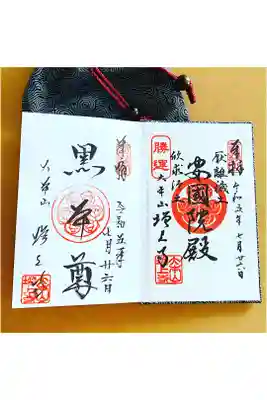 奉拝
令和五年七月廿六日
厭離穢土
安國院殿
欣求浄土
勝運
大本山増上寺
奉拝
令和五年
七月廿六日
黒本尊
大本山 増上寺